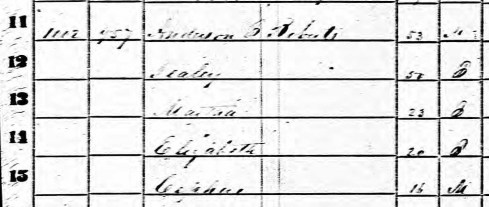 11 1112 957 Anderson C Roberts 53 M
12 Sealey 50 F
13 Martha 23 F
14 Elizabeth 20 F
15 Cephus 16 M